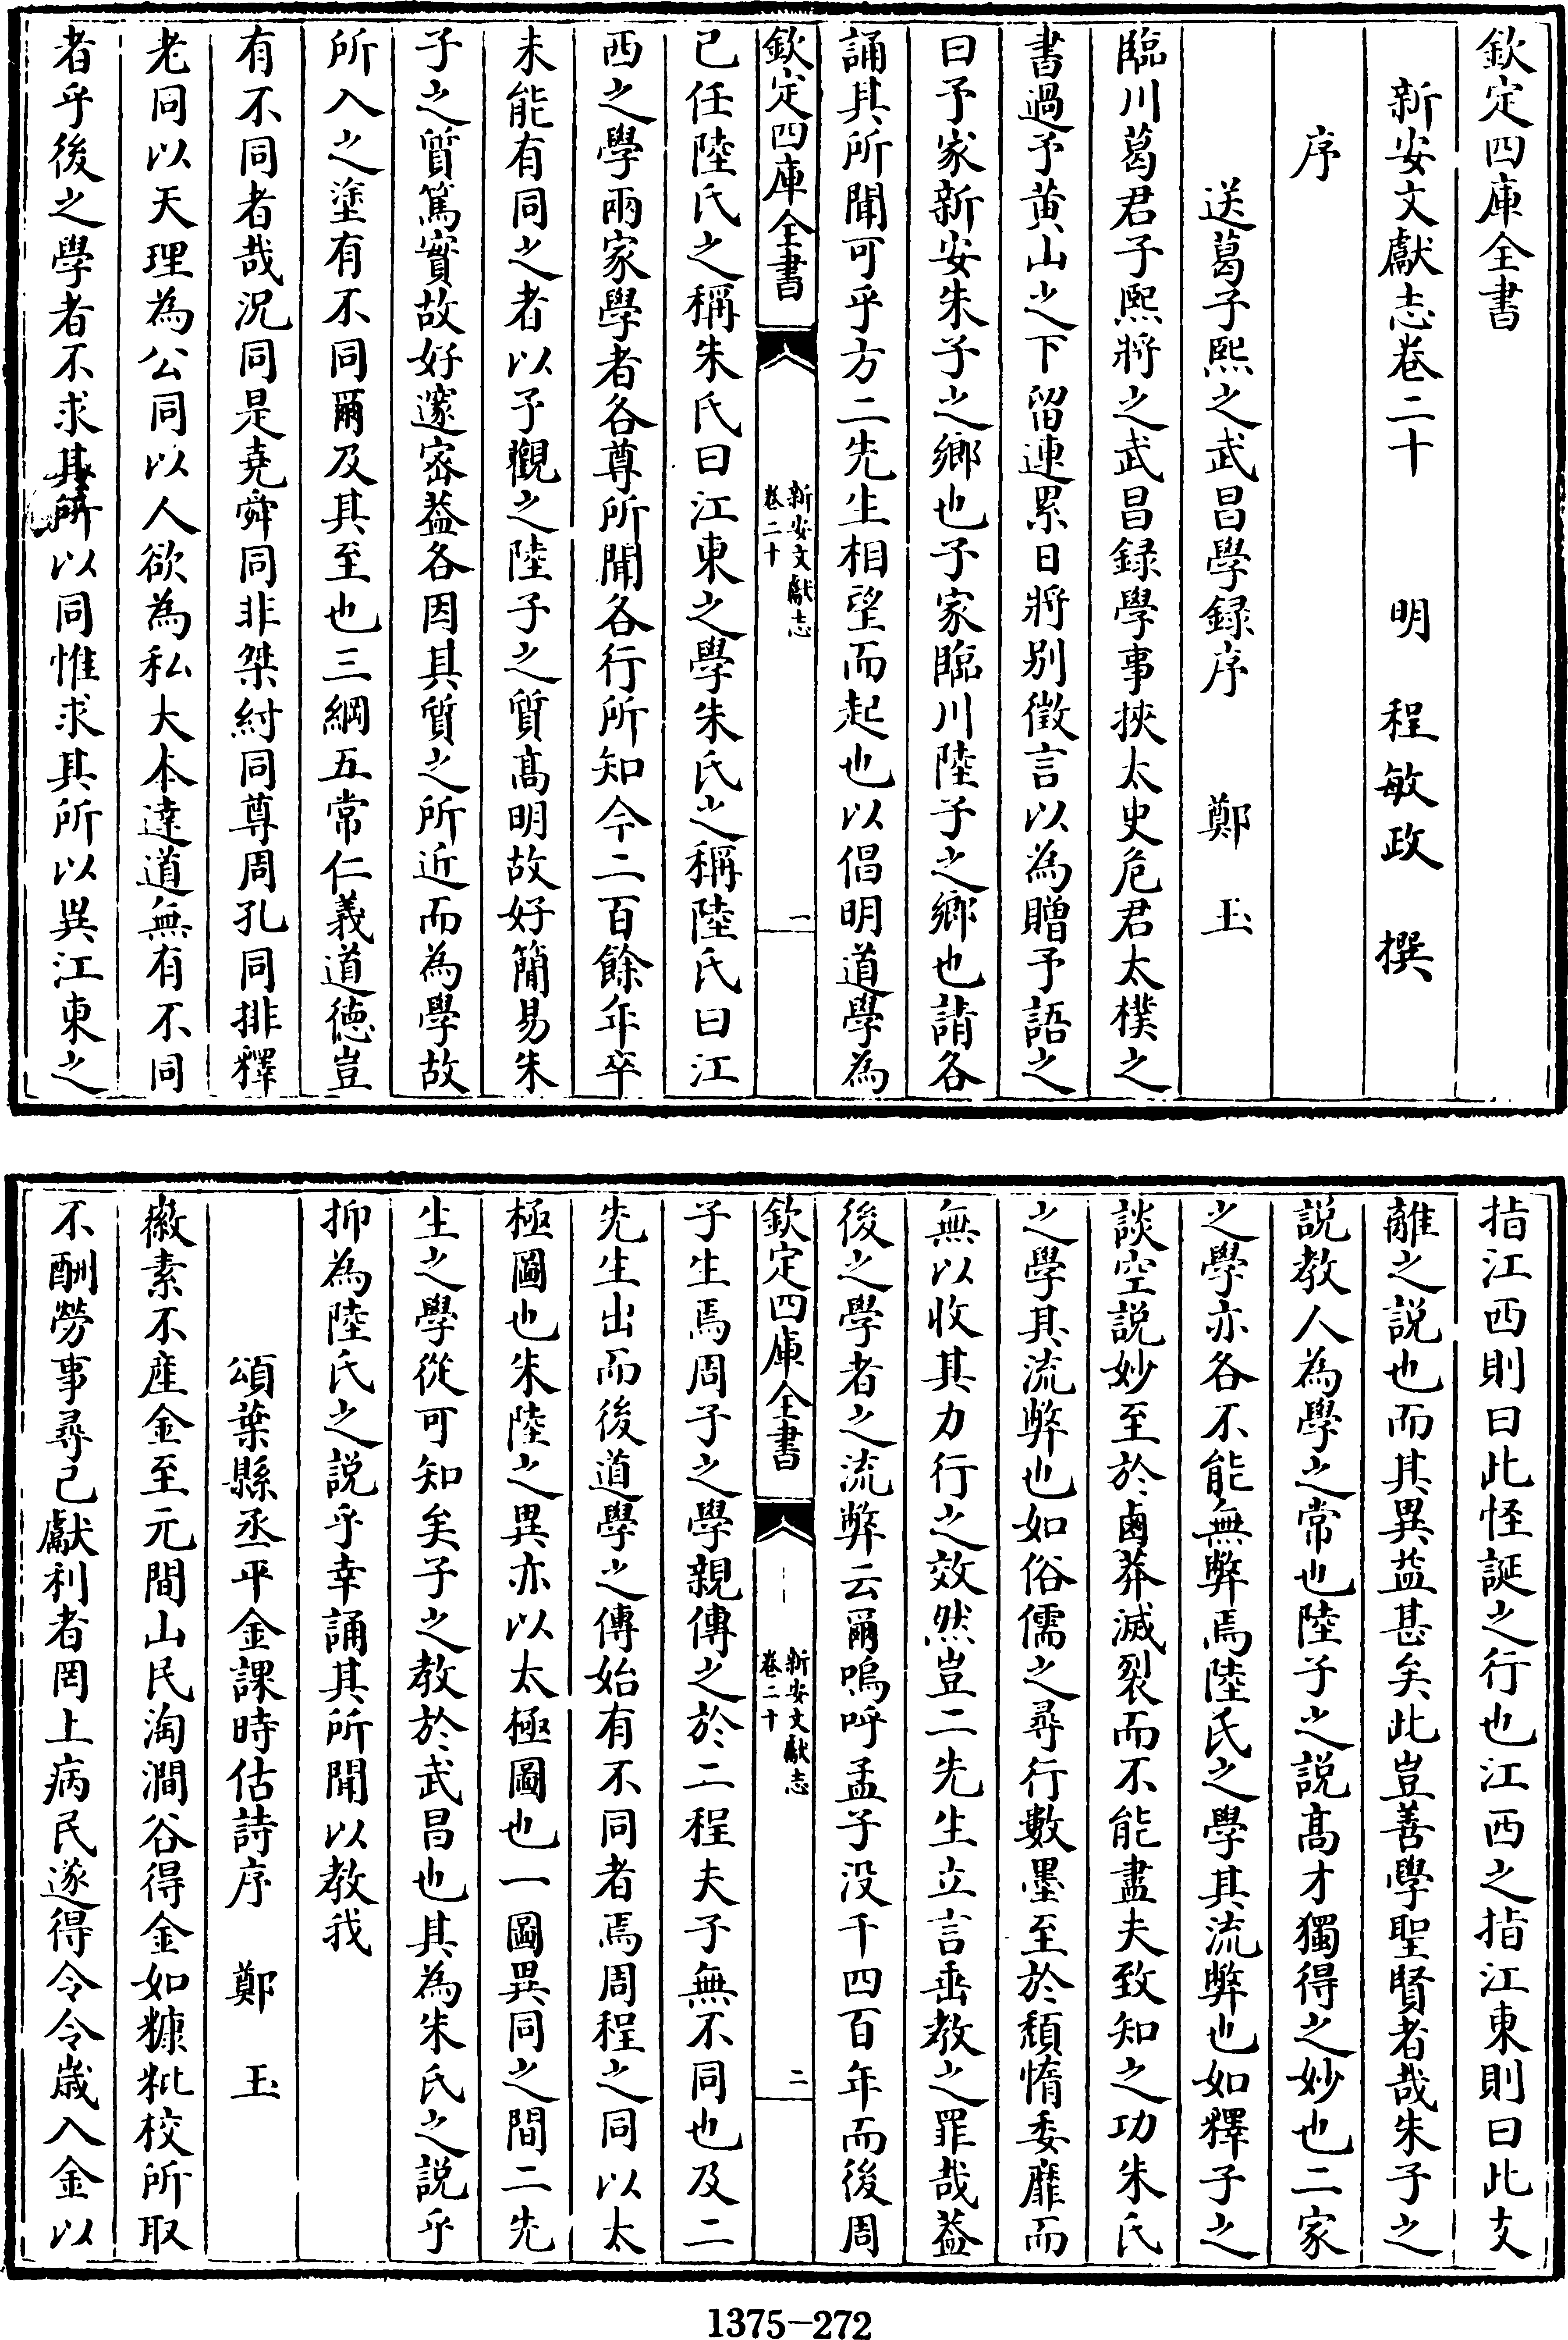 欽定四庫全書
新安文獻志卷二十　明　程敏政　撰
序
送葛子熙之武昌學録序　鄭　玉
臨川葛君子熙將之武昌録學事挾太史危君太樸之
書過予黄山之下留連累日將别徵言以為贈予語之
曰予家新安朱子之鄉也子家臨川陸子之鄉也請各
誦其所聞可乎方二先生相望而起也以倡明道學為
欽定四庫全書
新安文獻志
卷二十
一
己任陸氏之稱朱氏曰江東之學朱氏之稱陸氏曰江
西之學兩家學者各尊所聞各行所知今二百餘年卒
未能有同之者以予觀之陸子之質髙明故好簡易朱
子之質篤實故好邃密葢各因其質之所近而為學故
所入之塗有不同爾及其至也三綱五常仁義道徳豈
有不同者哉况同是堯舜同非桀紂同尊周孔同排釋
老同以天理為公同以人欲為私大本達道無有不同
者乎後之學者不求其所以同惟求其所以異江東之
指江西則曰此怪誕之行也江西之指江東則曰此支
離之説也而其異益甚矣此豈善學聖賢者哉朱子之
説教人為學之常也陸子之説髙才獨得之妙也二家
之學亦各不能無弊焉陸氏之學其流弊也如釋子之
談空説妙至於鹵莽滅裂而不能盡夫致知之功朱氏
之學其流弊也如俗儒之尋行數墨至於頽惰委靡而
無以收其力行之效然豈二先生立言垂教之罪哉葢
後之學者之流弊云爾嗚呼孟子没千四百年而後周
欽定四庫全書
新安文獻志
卷二十
二
子生焉周子之學親傳之於二程夫子無不同也及二
先生出而後道學之傳始有不同者焉周程之同以太
極圖也朱陸之異亦以太極圖也一圖異同之間二先
生之學從可知矣子之教於武昌也其為朱氏之説乎
抑為陸氏之説乎幸誦其所聞以教我
頌葉縣丞平金課時估詩序　鄭　玉
徽素不産金至元間山民淘澗谷得金如糠粃校所取
不酬勞事尋已獻利者罔上病民遂得令令歲入金以
1375-272